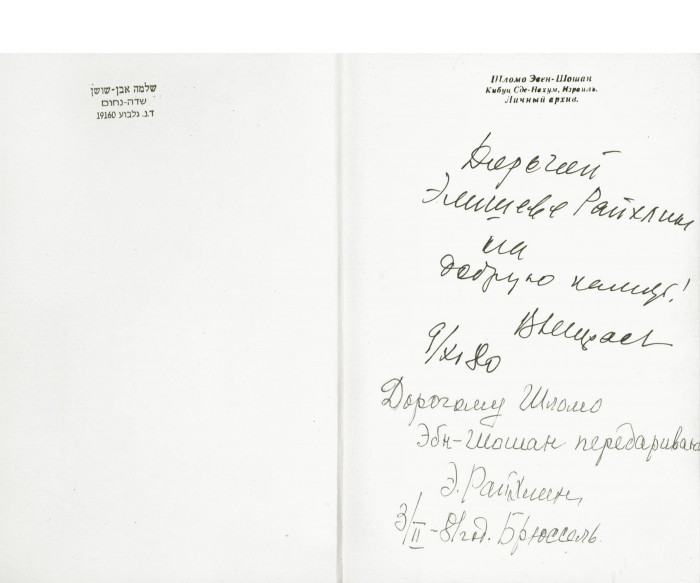 שלמה אבן-שושן
שדה-נחום
ד.נ. גלבוע 19160
Шломо Эвен-Шошан
Кибуц Сде-Нахум, Израиль.
Личный архив.
Дорогой
Элишеве Райхлин
на
добрую память!
9/XI 80
Дорогому Шломо
Эбн-Шошан передариваю
Э. Райхлин
3/II - 81 год. Брюссель.